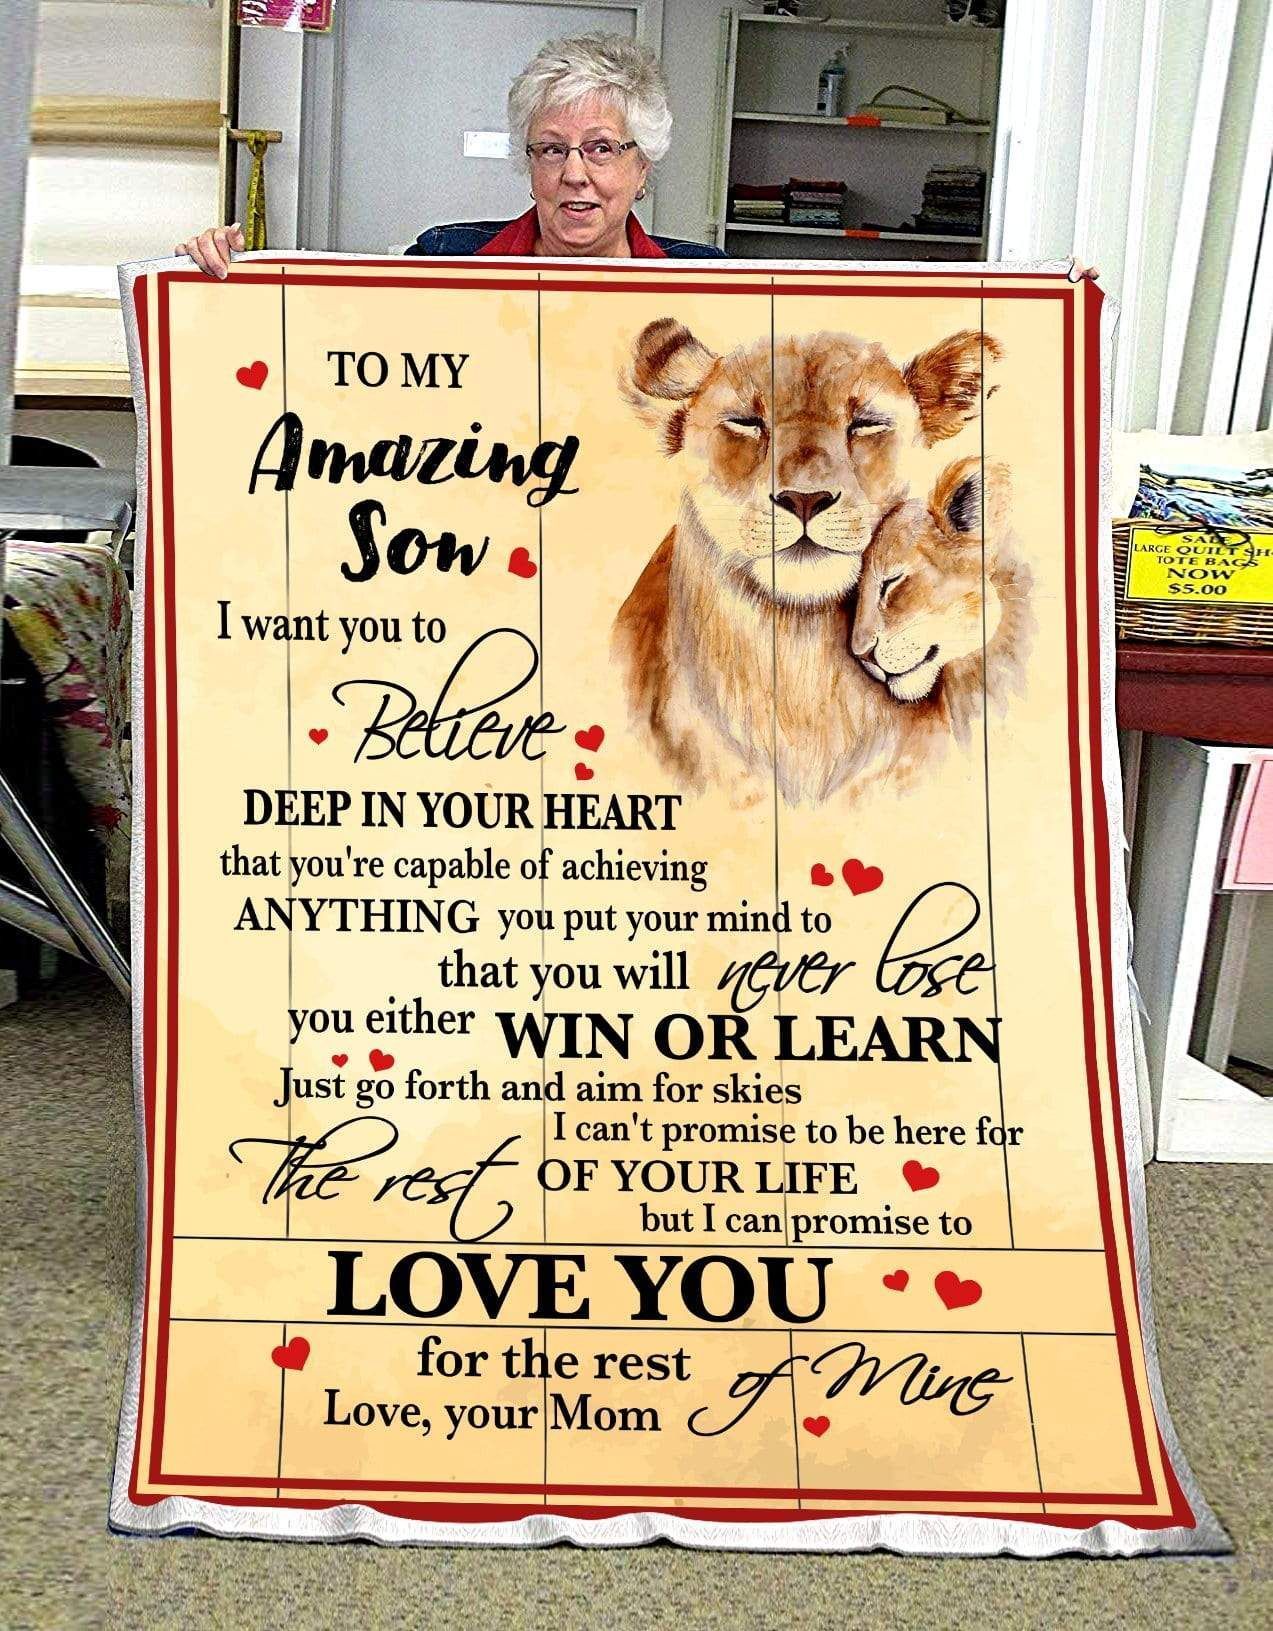 TO MY
Amazing
Son
I want you to
Believe
DEEP IN YOUR HEART
that you're capable of achieving
ANYTHING you put your mind to
that you will never lose
you either WIN OR LEARN
Just go forth and aim for skies
I can't promise to be here for
The rest OF YOUR LIFE
but I can promise to
LOVE YOU
for the rest of Mine
Love, your Mom
SALE
LARGE QUILT SH
TOTE BAGS
NOW
$5.00